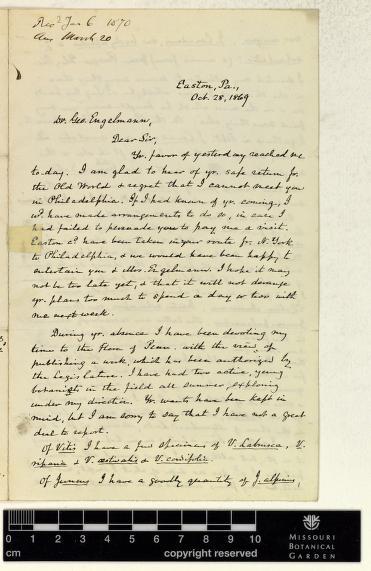 Recd Jan 6 1870
Ans March 20
Easton, Pa.,
Oct. 28, 1869
Dr. Geo. Engelmann,
Dear Sir,
Yr. favor of yesterday reached me
to-day. I am glad to hear of yr. safe return fr.
the Old World & regret that I cannot meet you
in Philadelphia. If I had known of yr. coming, I
wd. have made arrangements to do so, in case I
had failed to persuade you to pay me a visit.
Easton cd. have been taken in your route fr. N. York
to Philadelphia, & we would have been happy to
entertain you & Mrs. Engelmann. I hope it may
not be too late yet, & that it will not derange
yr. plans too much to spend a day or two with
me next week.
During yr. absence I have been devoting my
time to the flora of Penn. with the view of
publishing a work, which has been authorized by
the Legislature. I have had two active, young
botanists in the field all summer, exploring
under my direction. Yr. wants have been kept in
mind, but I am sorry to say that I have not a great
deal to report.
Of Vitis I have a few specimens of V. Labrusca, V.
riparia & V. aestivalis & V. cordifolia.
Of Juncus I have a goodly quantity of J. alpinus,
cm 0 1 2 3 4 5 6 7 8 9 10
copyright reserved
MISSOURI
BOTANICAL
GARDEN